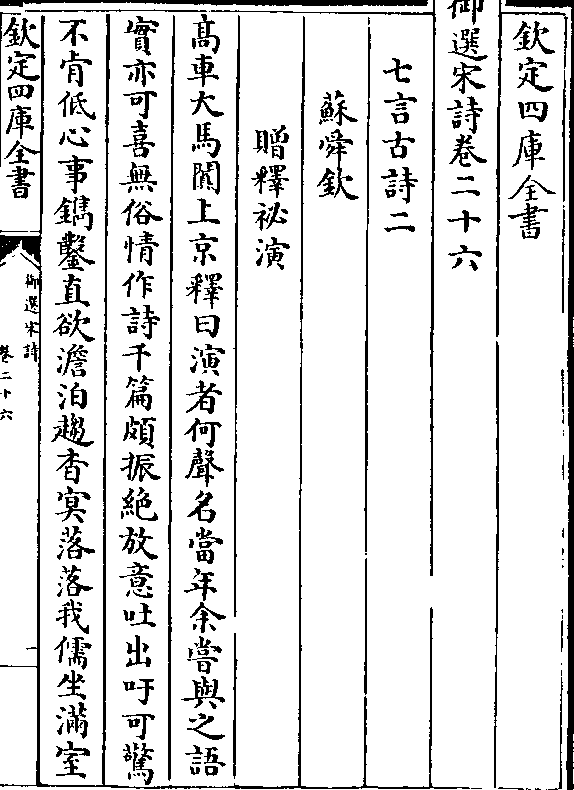 欽定四庫全書
御選宋詩卷二十六
七言古詩二
蘇舜欽
贈釋祕演
髙車大馬閙上京釋曰演者何聲名當年余嘗與之語
實亦可喜無俗情作詩千篇頗振絶放意吐出吁可驚
不肯低心事鐫鑿直欲澹泊趨杳㝠落落我儒坐滿室
欽定四庫全書
御選宋詩
卷二十六
一